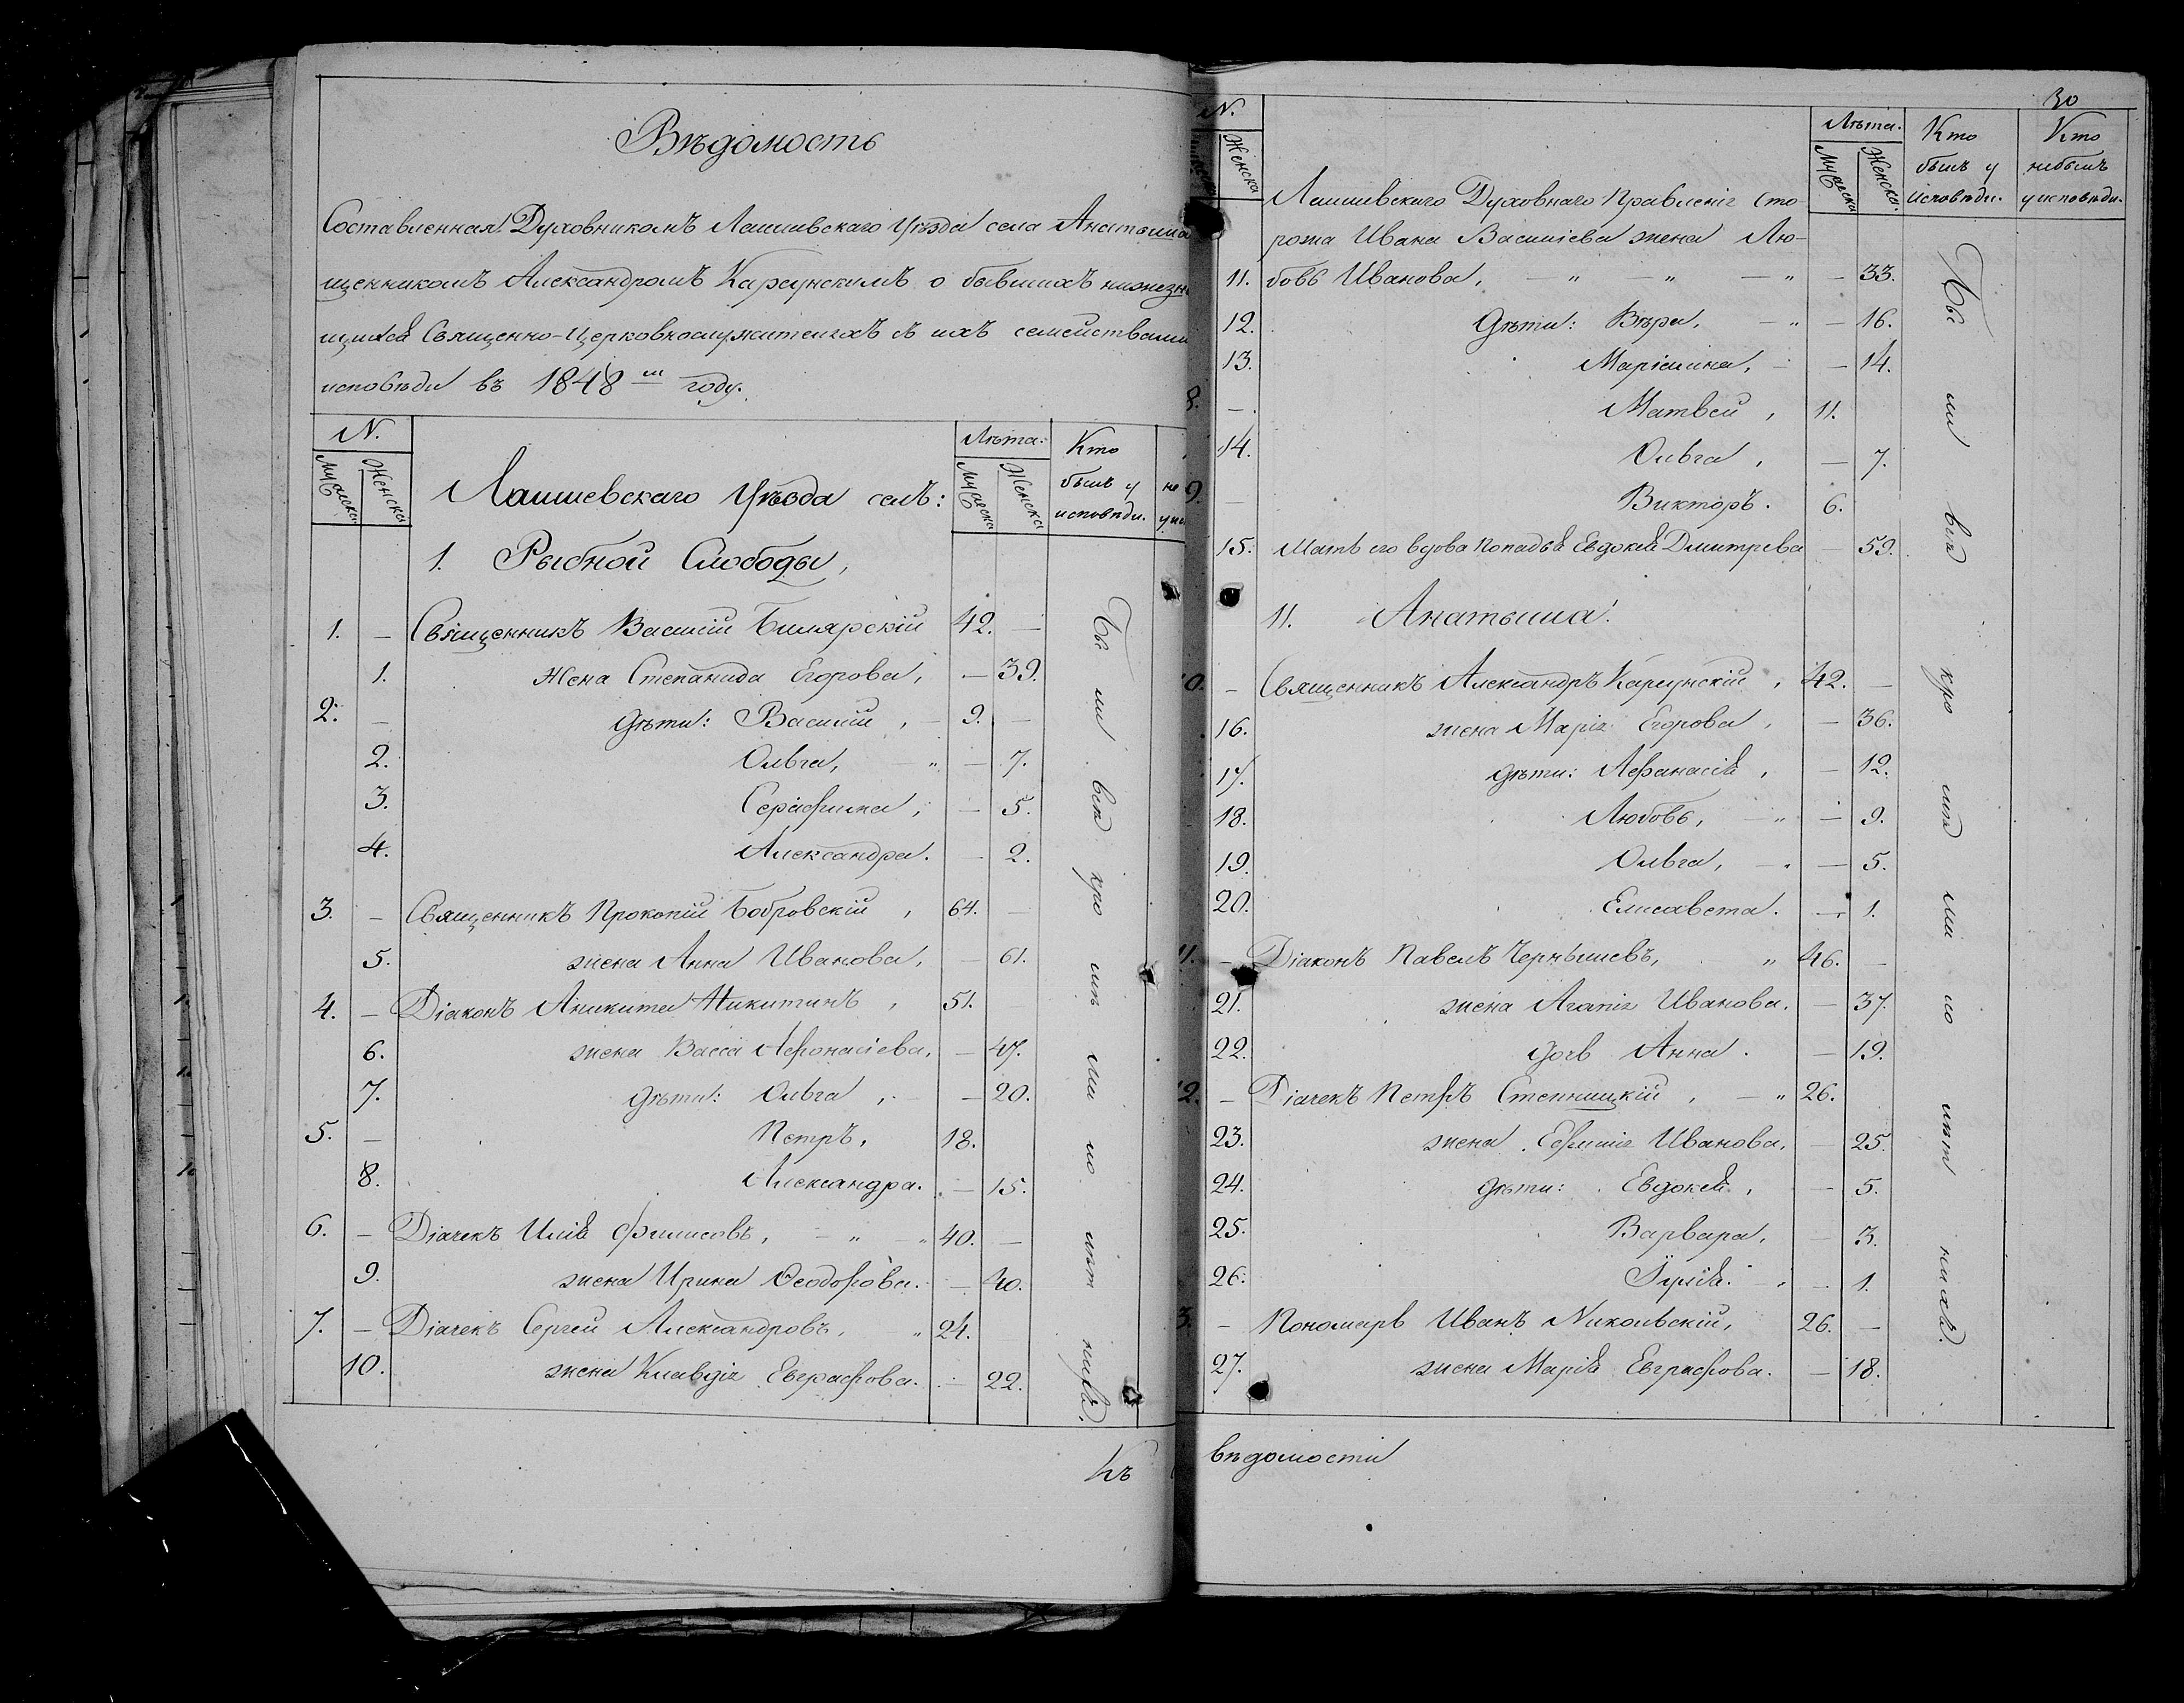 Вѣдомость
Составленная Духовникомъ Лаишевскаго Уѣзда села Анатыша
щенникомъ Александромъ Карсунскимъ о бывшихъ
щихся Священно-Церковнослужителяхъ съ ихъ семействами
исповѣди въ 1848 м году.
N. Лѣта. Кто
Мужеска Женска Мужеска Женска былъ у не
исповѣди.
Лаишевскаго Уѣзда селъ:
1. Рыбной Слободы,
1. — Священникъ Василій Билярскій 42. —
1. Жена Степанида Егорова, — 39.
2. — дѣти: Василій, — 9. —
2. Ольга, " — 7.
3. Серафима, — 5.
4. Александра. — 2.
3. — Священникъ Прокопій Бобровскій, 64. —
5. жена Анна Иванова, — 61.
4. — Діаконъ Аникита Никитинъ, 51.
6. жена Васса Афонасіева, — 47.
7. дѣти: Ольга, — 20.
5. — Петръ, 18.
8. Александра. — 15.
6. — Діачекъ Илія Филисовъ, — " — " 40. —
9. жена Ирина Ѳеодорова. — 40.
7. — Діачекъ Сергей Александровъ, " 24.
10. жена Клавдія Евграфова. — 22.
Къ
30
N. Лѣта. Кто Кто
Женска Мужеска Женска былъ у небылъ
исповѣди. у исповѣди.
Лаишевскаго Духовнаго Правленія сто
рожа Ивана Василіева жена Лю-
11. бовь Иванова, — " — " — " — 33.
12. дѣти: Вѣра, — " — 16.
13. Маріамна, — — 14.
8. — Матвей, 11.
14. Ольга, — 7.
9. — Викторъ. 6.
15. Мать его вдова Попадья Евдокея Дмитрева — 59.
11. Анатыша:
10. — Священникъ Александръ Карсунскій, 42. —
16. жена Марія Егорова, — 36.
17. дѣти: Афанасія, — 12.
18. Любовь, — " — 9.
19. Ольга, — " — 5.
20. Елисавета. — 1.
11. — Діаконъ Павелъ Чернышевъ, " 46. —
21. жена Агапія Иванова. — 37.
22. дочь Анна. — 19.
12. — Діачекъ Петръ Степницкій, — " 26.
23. жена Ефимія Иванова, — 25.
24. дѣти: Евдокея, — 5.
25. Варвара, — 3.
26. Іулія. — 1.
13. — Пономарь Иванъ Никольскій, 26. —
27. жена Марія Евграфова. — 18.
вѣдомости